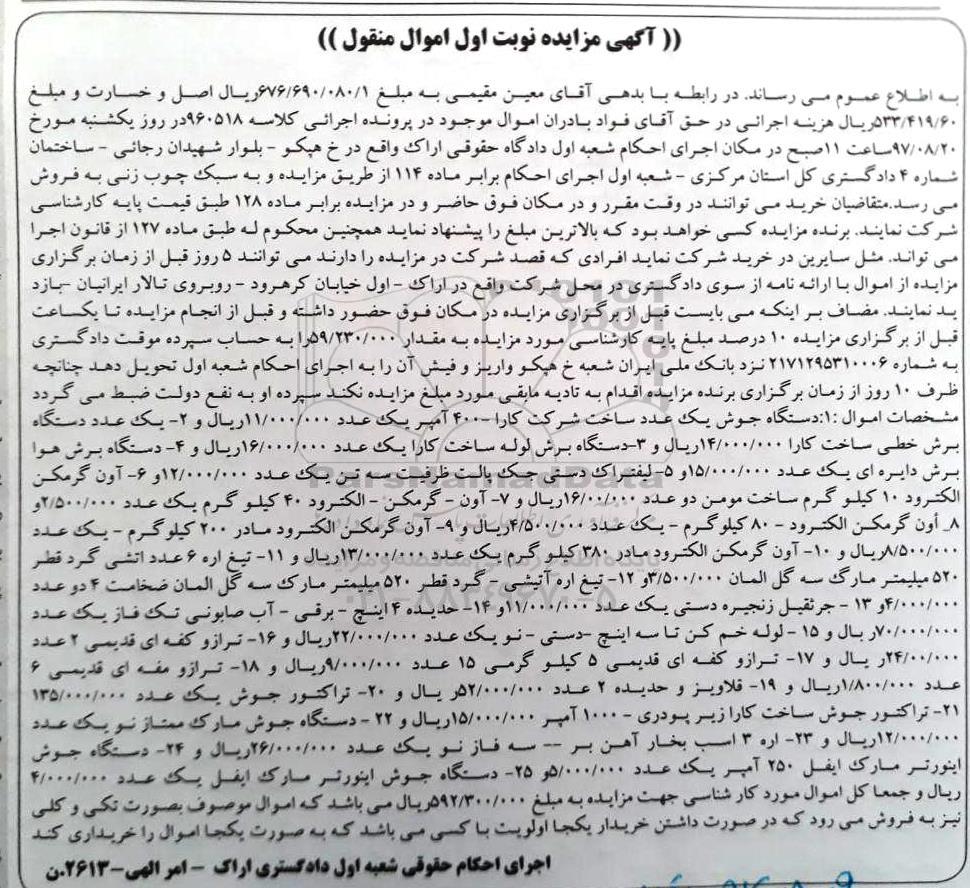 (( آگهی مزایده نوبت اول اموال منقول ))
به اطلاع عموم می رساند. در رابطه با بدهی آقای معین مقیمی به مبلغ ۶۷۶/۶۹۰/۰۸۰/۱ریال اصل و خسارت و مبلغ
۵۳۳/۴۱۹/۶۰ریال هزینه اجرائی در حق آقای فواد بادران اموال موجود در پرونده اجرائی کلاسه ۹۶۰۵۱۸در روز یکشنبه مورخ
۹۷/۰۸/۲۰ساعت ۱۱صبح در مکان اجرای احکام شعبه اول دادگاه حقوقی اراک واقع در خ هپکو - بلوار شهیدان رجائی - ساختمان
شماره ۴ دادگستری کل استان مرکزی - شعبه اول اجرای احکام برابر ماده ۱۱۴ از طریق مزایده و به سبک چوب زنی به فروش
می رسد.متقاضیان خرید می توانند در وقت مقرر و در مکان فوق حاضر و در مزایده برابر ماده ۱۲۸ طبق قیمت پایه کارشناسی
شرکت نمایند. برنده مزایده کسی خواهد بود که بالاترین مبلغ را پیشنهاد نماید همچنین محکوم له طبق ماده ۱۲۷ از قانون اجرا
می تواند. مثل سایرین در خرید شرکت نماید افرادی که قصد شرکت در مزایده را دارند می توانند ۵ روز قبل از زمان برگزاری
مزایده از اموال با ارائه نامه از سوی دادگستری در محل شرکت واقع در اراک - اول خیابان کرهرود - روبروی تالار ایرانیان -بازد
ید نمایند. مضاف بر اینکه می بایست قبل از برگزاری مزایده در مکان فوق حضور داشته و قبل از انجام مزایده تا یکساعت
قبل از برگزاری مزایده ۱۰ درصد مبلغ پایه کارشناسی مورد مزایده به مقدار ۵۹/۲۳۰/۰۰۰را به حساب سپرده موقت دادگستری
به شماره ۲۱۷۱۲۹۵۳۱۰۰۰۶ نزد بانک ملی ایران شعبه خ هپکو واریز و فیش آن را به اجرای احکام شعبه اول تحویل دهد چنانچه
ظرف ۱۰ روز از زمان برگزاری برنده مزایده اقدام به تادیه مابقی مورد مبلغ مزایده نکند سپرده او به نفع دولت ضبط می گردد
مشخصات اموال :۱:دستگاه جوش یک عدد ساخت شرکت کارا -۴۰۰ آمپر یک عدد ۱۱/۰۰۰/۰۰۰ریال و ۲- یک عدد دستگاه
برش خطی ساخت کارا ۱۴/۰۰۰/۰۰۰ریال و ۳-دستگاه برش لوله ساخت کارا یک عدد ۱۶/۰۰۰/۰۰۰ریال و ۴- دستگاه برش هوا
برش دایره ای یک عدد ۱۵/۰۰۰/۰۰۰و ۵-لیفتراک دستی جک پالت ظرفیت سه تن یک عدد ۱۲/۰۰۰/۰۰۰و ۶- آون گرمکن
الکترود ۱۰ کیلو گرم ساخت مومن دو عدد ۱۶/۰۰/۰۰۰ریال و ۷- آون - گرمکن - الکترود ۴۰ کیلو گرم یک عدد ۲/۵۰۰/۰۰۰و
۸_ أون گرمکن الکترود - ۸۰ کیلوگرم - یک عدد ۴/۵۰۰/۰۰۰ریال و ۹- آون گرمکن الکترود مادر ۲۰۰ کیلوگرم - یک عدد
۸/۵۰۰/۰۰۰ریال و ۱۰- آون گرمکن الکترود مادر ۳۸۰ کیلو گرم یک عدد ۱۳/۰۰۰/۰۰۰ریال و ۱۱- تیغ اره ۶ عدد اتشی گرد قطر
۵۲۰ میلیمتر مارک سه گل المان ۳/۵۰۰/۰۰۰و ۱۲- تیغ اره آتیشی - گرد قطر ۵۲۰ میلیمتر مارک سه گل المان ضخامت ۴ دو عدد
۴/۰۰۰/۰۰۰و ۱۳ - جرثقیل زنجیره دستی یک عدد ۱۱/۰۰۰/۰۰۰و ۱۴- حدیده ۴ اینچ - برقی - آب صابونی تک فاز یک عدد
۷۰/۰۰۰/۰۰۰ریال و ۱۵ - لوله خم کن تا سه اینچ -دستی - نو یک عدد ۲۲/۰۰۰/۰۰۰ریال و ۱۶- ترازو کفه ای قدیمی ۲ عدد
۲۴/۰۰/۰۰۰ر یال و ۱۷- ترازو کفه ای قدیمی ۵ کیلو گرمی ۱۵ عدد ۹/۰۰۰/۰۰۰ریال و ۱۸- ترازو مفه ای قدیمی ۶
عدد ۱/۸۰۰/۰۰۰ریال و ۱۹- قلاویز و حدیده ۲ عدد ۵۲/۰۰۰/۰۰۰ر یال و ۲۰- تراکتور جوش یک عدد ۱۳۵/۰۰۰/۰۰۰
۲۱- تراکتور جوش ساخت کارا زیر پودری - ۱۰۰۰ آمپر ۱۵/۰۰۰/۰۰۰ریال و ۲۲ - دستگاه جوش مارک ممتاز نو یک عدد
۱۲/۰۰۰/۰۰۰ریال و ۲۳- اره ۳ اسب بخار آهن بر -- سه فاز نو یک عدد ۲۶/۰۰۰/۰۰۰ریال و ۲۴- دستگاه جوش
اینورتر مارک ایفل ۲۵۰ آمپر یک عدد ۵/۰۰۰/۰۰۰و ۲۵- دستگاه جوش اینورتر مارک ایفل یک عدد ۴/۰۰۰/۰۰۰
ریال و جمعا کل اموال مورد کار شناسی جهت مزایده به مبلغ ۵۹۲/۳۰۰/۰۰۰ریال می باشد که اموال موصوف بصورت تکی و کلی
نیز به فروش می رود که در صورت داشتن خریدار یکجا اولویت با کسی می باشد که به صورت یکجا اموال را خریداری کند
اجرای احکام حقوقی شعبه اول دادگستری اراک - امر الهی-۲۶۱۳.ن
ParsNamadData